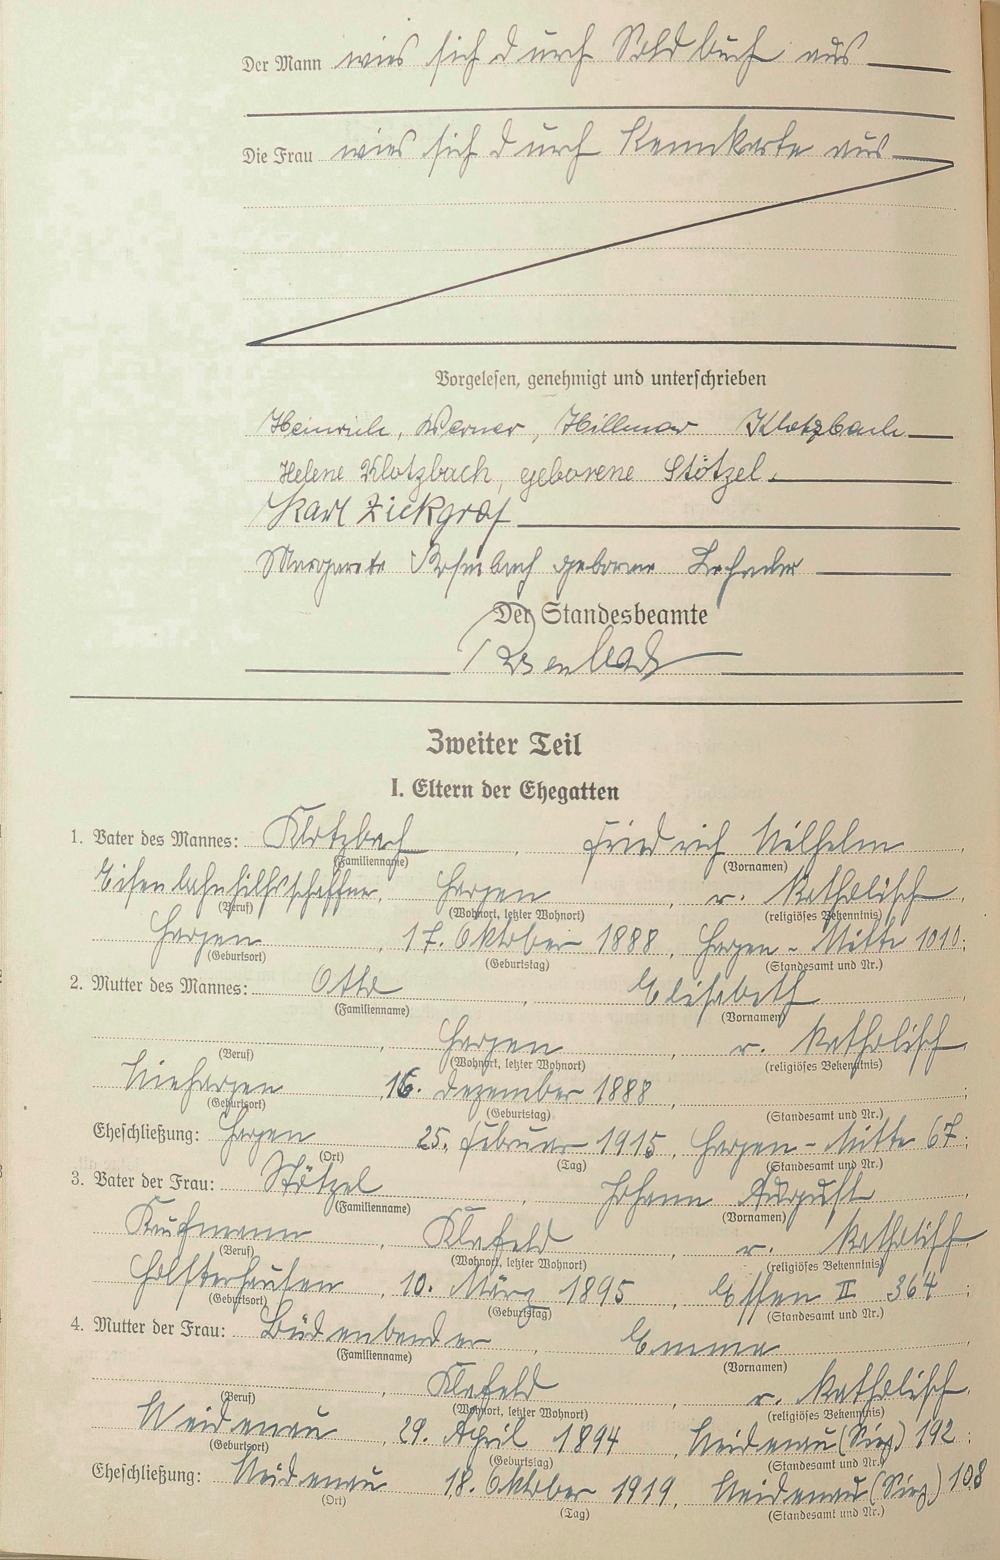 Der Mann wies sich durch Soldbuch aus
Die Frau wies sich durch Kennkarte aus
Vorgelesen, genehmigt und unterschrieben
Heinrich, Werner, Hillmar Klotzbach
Helene Klotzbach, geborene Stötzel.
Karl Zickgraf
Margarete Rosenbach geborene
Der Standesbeamte
Rosenbach
Zweiter Teil
I. Eltern der Ehegatten
1. Vater des Mannes: Klotzbach, Friedrich Wilhelm,
(Familienname) (Vornamen)
Eisenbahnhilfsschaffner, Hagen, r. katholisch
(Beruf) (Wohnort, letzter Wohnort) (religiöses Bekenntnis)
Hagen, 17. Oktober 1888, Hagen-Mitte 1010;
(Geburtsort) (Geburtstag) (Standesamt und Nr.)
2. Mutter des Mannes: Otto, Elisabeth,
(Familienname) (Vornamen)
, Hagen, r. katholisch,
(Beruf) (Wohnort, letzter Wohnort) (religiöses Bekenntnis)
Niehagen, 16. Dezember 1888, ;
(Geburtsort) (Geburtstag) (Standesamt und Nr.)
Eheschließung: Hagen 25. Februar 1915, Hagen-Mitte 67;
(Ort) (Tag) (Standesamt und Nr.)
3. Vater der Frau: Stötzel, Johann August,
(Familienname) (Vornamen)
Kaufmann, Klafeld, r. katholisch,
(Beruf) (Wohnort, letzter Wohnort) (religiöses Bekenntnis)
Holsterhausen, 10. März 1895, Essen II 364;
(Geburtsort) (Geburtstag) (Standesamt und Nr.)
4. Mutter der Frau: Büdenbender, Emma,
(Familienname) (Vornamen)
, Klafeld, r. katholisch,
(Beruf) (Wohnort, letzter Wohnort) (religiöses Bekenntnis)
Weidenau, 29. April 1894, Weidenau (Sieg) 192;
(Geburtsort) (Geburtstag) (Standesamt und Nr.)
Eheschließung: Weidenau 18. Oktober 1919, Weidenau (Sieg) 108
(Ort) (Tag) (Standesamt und Nr.)